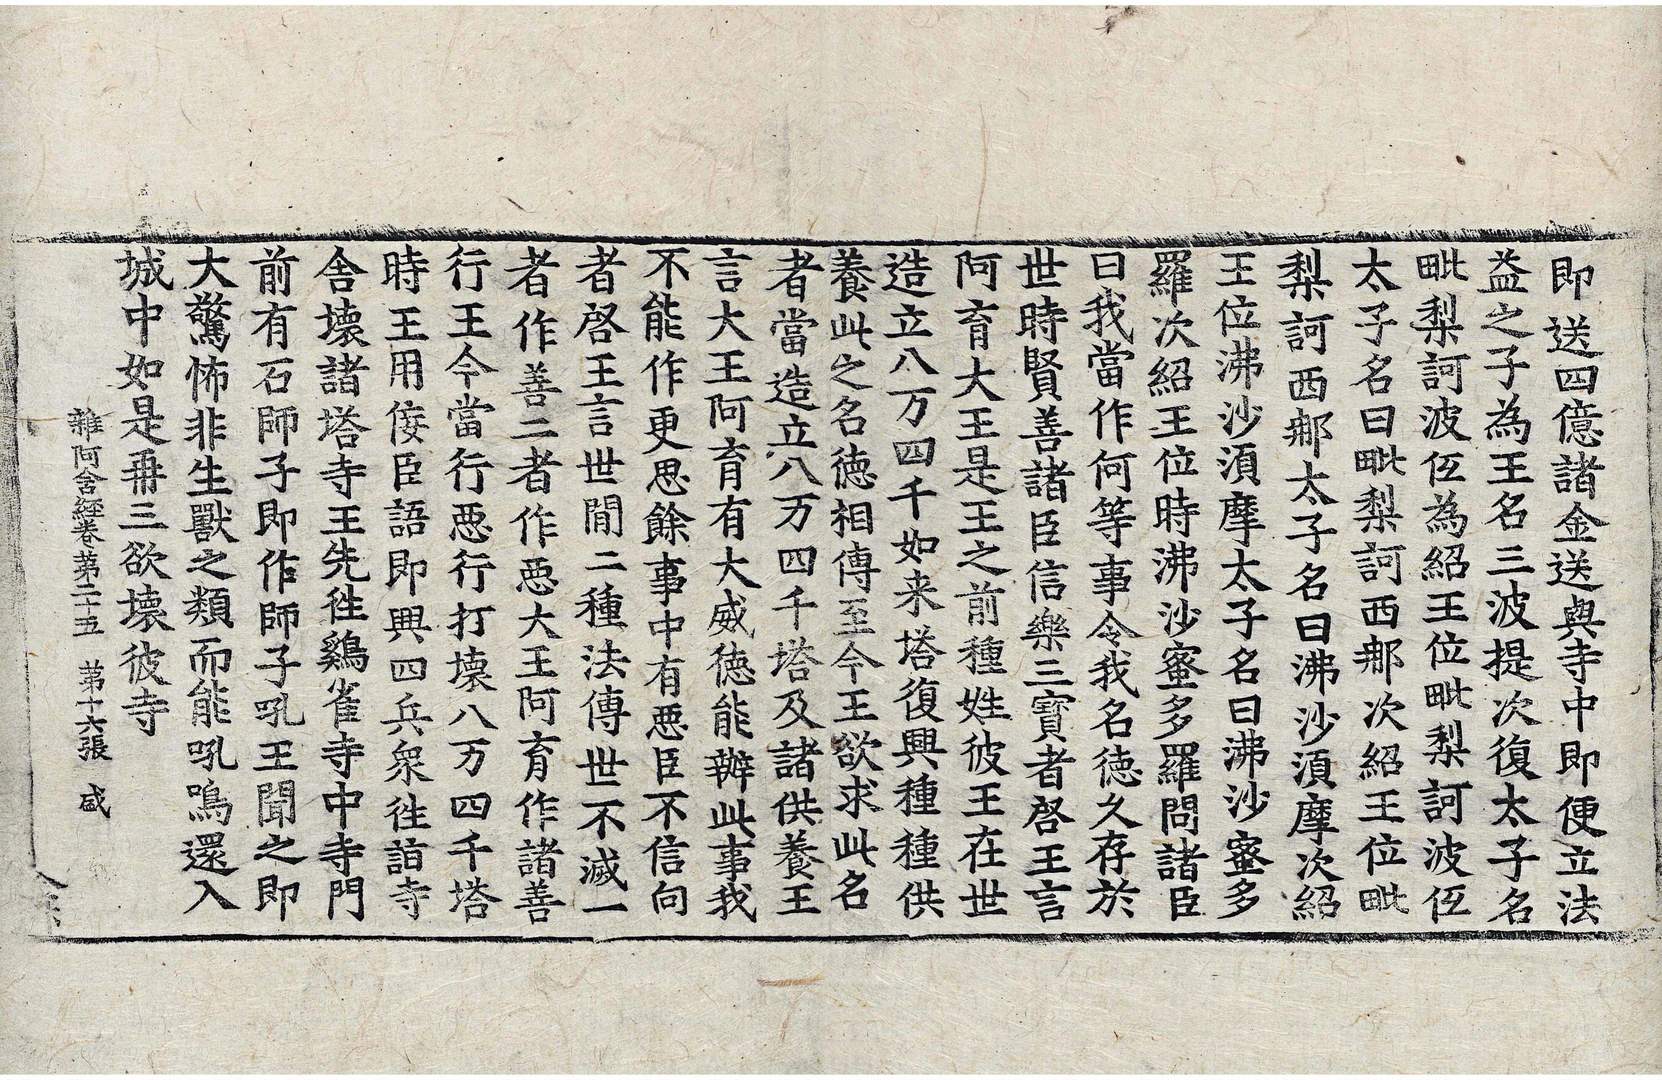 即送四億諸金送與寺中即便立法
益之子為王名三波提次復太子名
毗梨訶波低為紹王位毗梨訶波低
太子名曰毗梨訶西那次紹王位毗
梨訶西那太子名曰沸沙湏摩次紹
王位沸沙湏摩太子名曰沸沙蜜多
羅次紹王位時沸沙蜜多羅問諸臣
曰我當作何等事令我名德久存於
世時賢善諸臣信樂三寶者啓王言
阿育大王是王之前種姓彼王在世
造立八万四千如来塔復興種種供
養此之名德相傳至今王欲求此名
者當造立八万四千塔及諸供養王
言大王阿育有大威德能辦此事我
不能作更思餘事中有惡臣不信向
者啓王言世間二種法傳世不滅一
者作善二者作惡大王阿育作諸善
行王今當行惡行打壞八万四千塔
時王用侫臣語即興四兵衆徃詣寺
舍壞諸塔寺王先徃鷄雀寺中寺門
前有石師子即作師子吼王聞之即
大驚怖非生獸之類而能吼鳴還入
城中如是再三欲壞彼寺
雜阿含經卷第二十五　第十六張　盛